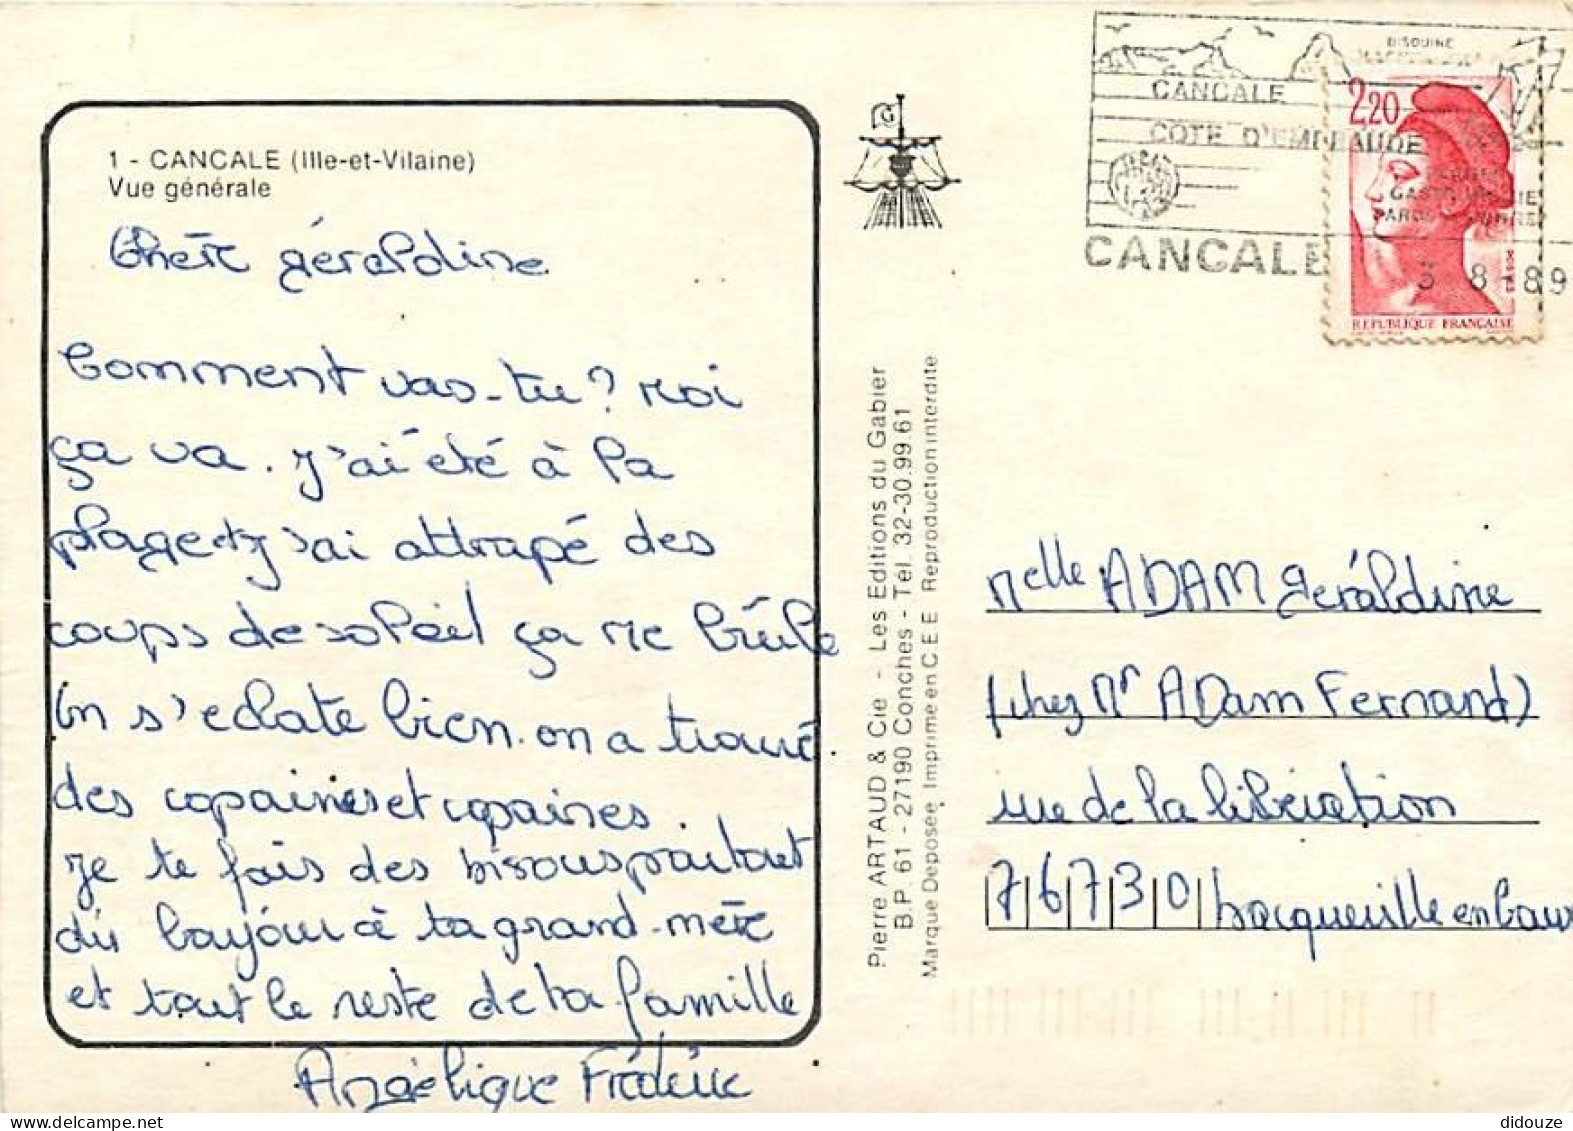 1 - CANCALE (Ille-et-Vilaine)
Vue générale
Chère géraldine
Comment vas-tu? Moi
ça va. J'ai été à la
plage et j'ai attrapé des
coups de soleil ça me brûle
On s'eclate bien. on a trouvé
des copaines et copaines.
Je te fais des bisous partout
dis bonjour à ta grand-mère
et tout le reste de ta famille
Angélique Frédéric
G
Pierre ARTAUD & Cie - Les Editions du Gabier
B.P. 61 - 27190 Conches - Tél. 32-30.99.61
Marque Déposée Imprimé en C E E Reproduction interdite
CANCALE
COTE D'EMERAUDE
CANCALE
3 8 - 89
2,20
REPUBLIQUE FRANÇAISE
Melle ADAM Géraldine
(chez Mr ADam Fernand)
rue de la libération
76730 bacqueville en caux
didouze